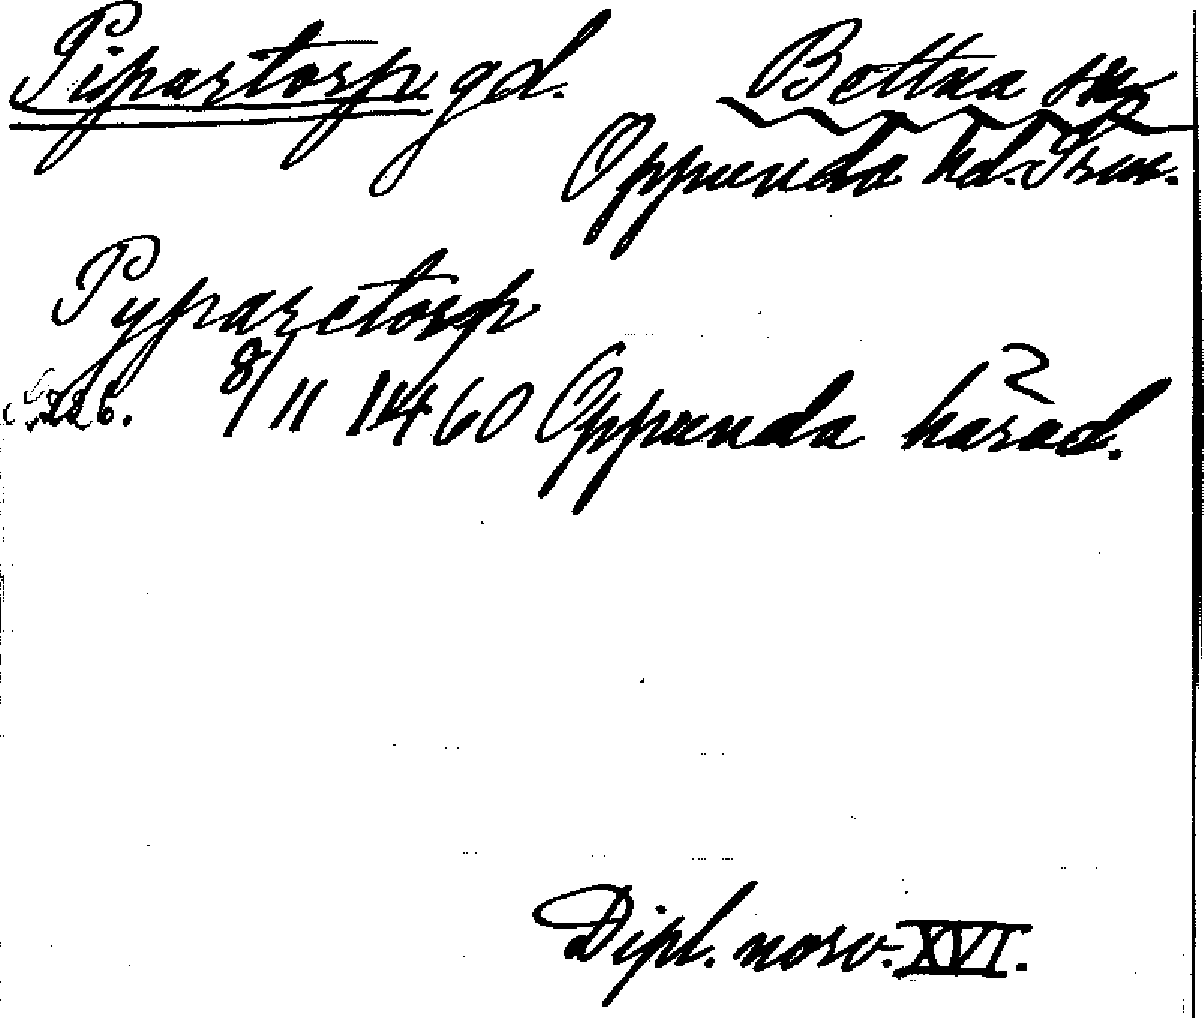 Pipartorp gd. Bettna sn
Oppunda hd. Srm.
Pyparetorp
s. 226. 8/11 1460 Oppunda härad.
Dipl. norv. XVI.